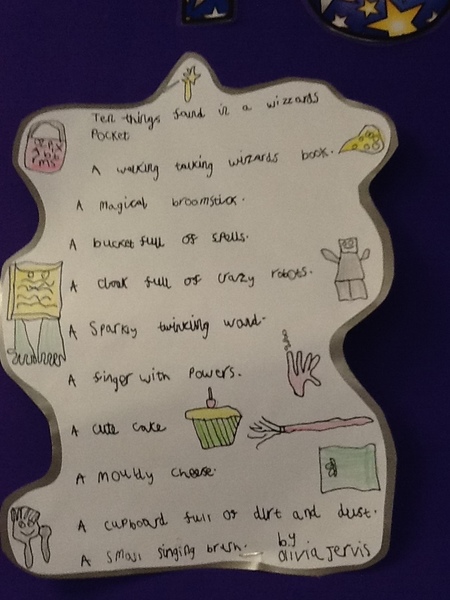 Ten things found in a wizzards
Pocket
A walking talking wizards book.
A magical broomstick.
A bucket full of spells.
A cloak full of crazy robots.
A Sparky twinking wand.
A finger with Powers.
A cute cake
A mouldy cheese.
A cupboard full of dirt and dust.
A small singing brush.
by
Olivia Jervis